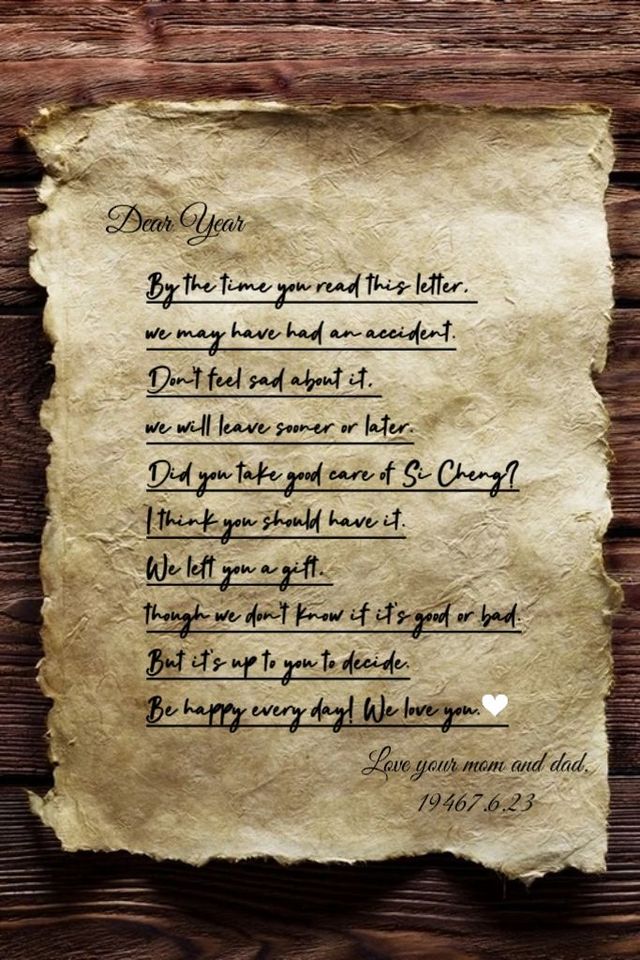 Dear Year
By the time you read this letter.
we may have had an accident.
Don't feel sad about it.
we will leave sooner or later.
Did you take good care of Si Cheng?
I think you should have it.
We left you a gift.
though we don't know if it's good or bad.
But it's up to you to decide.
Be happy every day! We love you.
Love your mom and dad.
19467.6.23